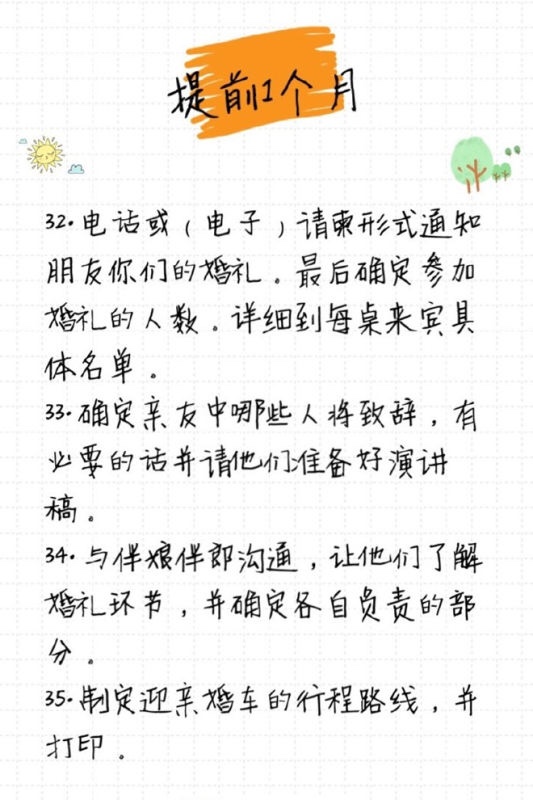 提前1个月
32.电话或（电子）请柬形式通知
朋友你们的婚礼。最后确定参加
婚礼的人数。详细到每桌来宾具
体名单。
33.确定亲友中哪些人将致辞，有
必要的话并请他们准备好演讲
稿。
34.与伴娘伴郎沟通，让他们了解
婚礼环节，并确定各自负责的部
分。
35.制定迎亲婚车的行程路线，并
打印。